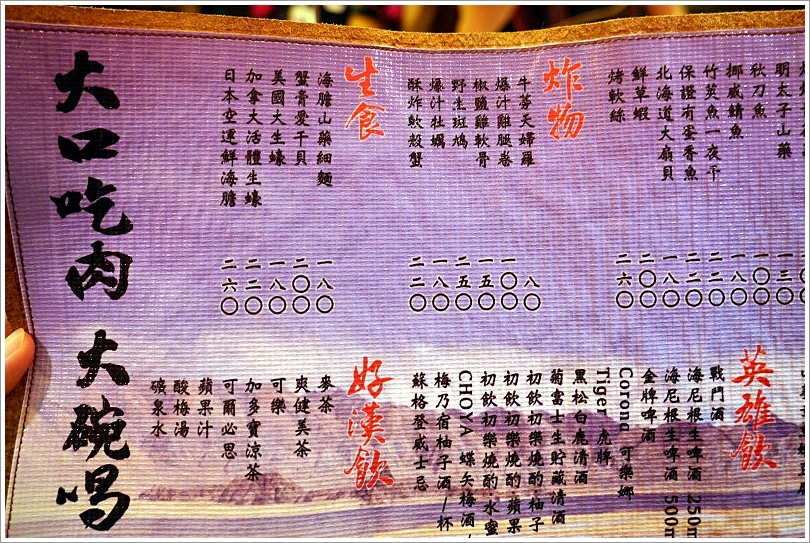 明太子山藥 一三〇
秋刀魚 一〇〇
挪威鯖魚 一八〇
竹莢魚一夜干 二二〇
保證有蛋香魚 二二〇
北海道大扇貝 一八〇
鮮草蝦 二〇〇
烤軟絲 二六〇
炸物
牛蒡天婦羅 八〇
爆汁雞腿卷 一〇〇
椒鹽雞軟骨 一五〇
野生斑鳩 二五〇
爆汁牡蠣 一八〇
酥炸軟殼蟹 二二〇
生食
海膽山藥細麵 一八〇
蟹膏愛干貝 二〇〇
美國大生蠔 一八〇
加拿大活體生蠔 二二〇
日本空運鮮海膽 二六〇
英雄飲
戰鬥酒
海尼根生啤酒 250m
海尼根生啤酒 500m
金牌啤酒
Corona 可樂娜
Tiger 虎牌
黑松白鹿清酒
菊富士生貯藏清酒
初飲初樂燒酌·柚子
初飲初樂燒酌·蘋果
初飲初樂燒酌·水蜜
CHOYA 蝶矢梅酒/
梅乃宿柚子酒/杯
蘇格登威士忌
好漢飲
麥茶
爽健美茶
可樂
加多寶涼茶
可爾必思
蘋果汁
酸梅湯
礦泉水
大口吃肉 大碗喝